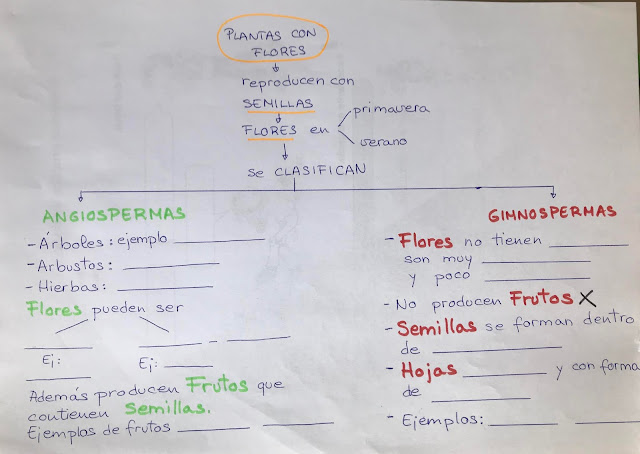 PLANTAS CON
FLORES
reproducen con
SEMILLAS
FLORES en
primavera
verano
se CLASIFICAN
ANGIOSPERMAS
- Árboles: ejemplo ________
- Arbustos: ________
- Hierbas: ________
Flores pueden ser
________ ________ - ________
Ej: ________ Ej: ________
Además producen Frutos que
contienen Semillas.
Ejemplos de frutos ________ ________
GIMNOSPERMAS
- Flores no tienen ________
son muy ________
y poco ________
- No producen Frutos X
- Semillas se forman dentro
de ________
- Hojas ________ y con forma
de ________
- Ejemplos: ________ ________